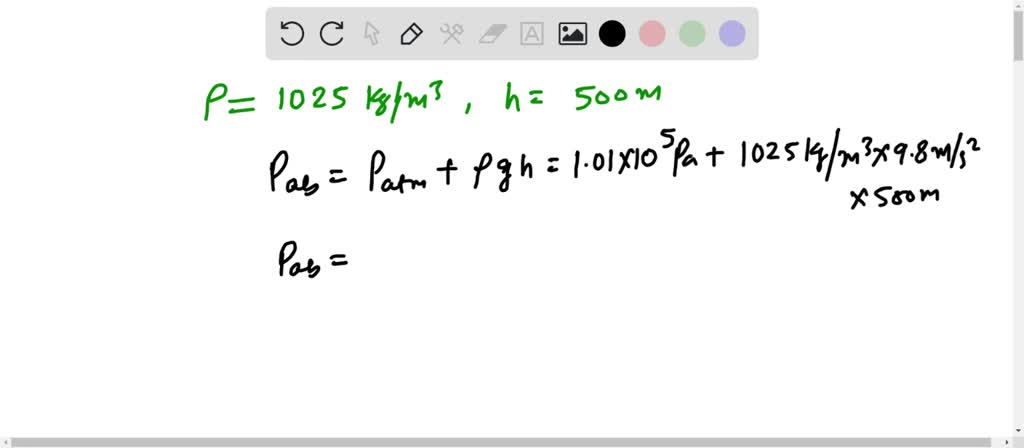 ρ = 1025 kg/m³ , h = 500 m
P_ab = P_atm + ρgh = 1.01×10⁵ Pa + 1025 kg/m³ × 9.8 m/s²
× 500 m
P_ab =